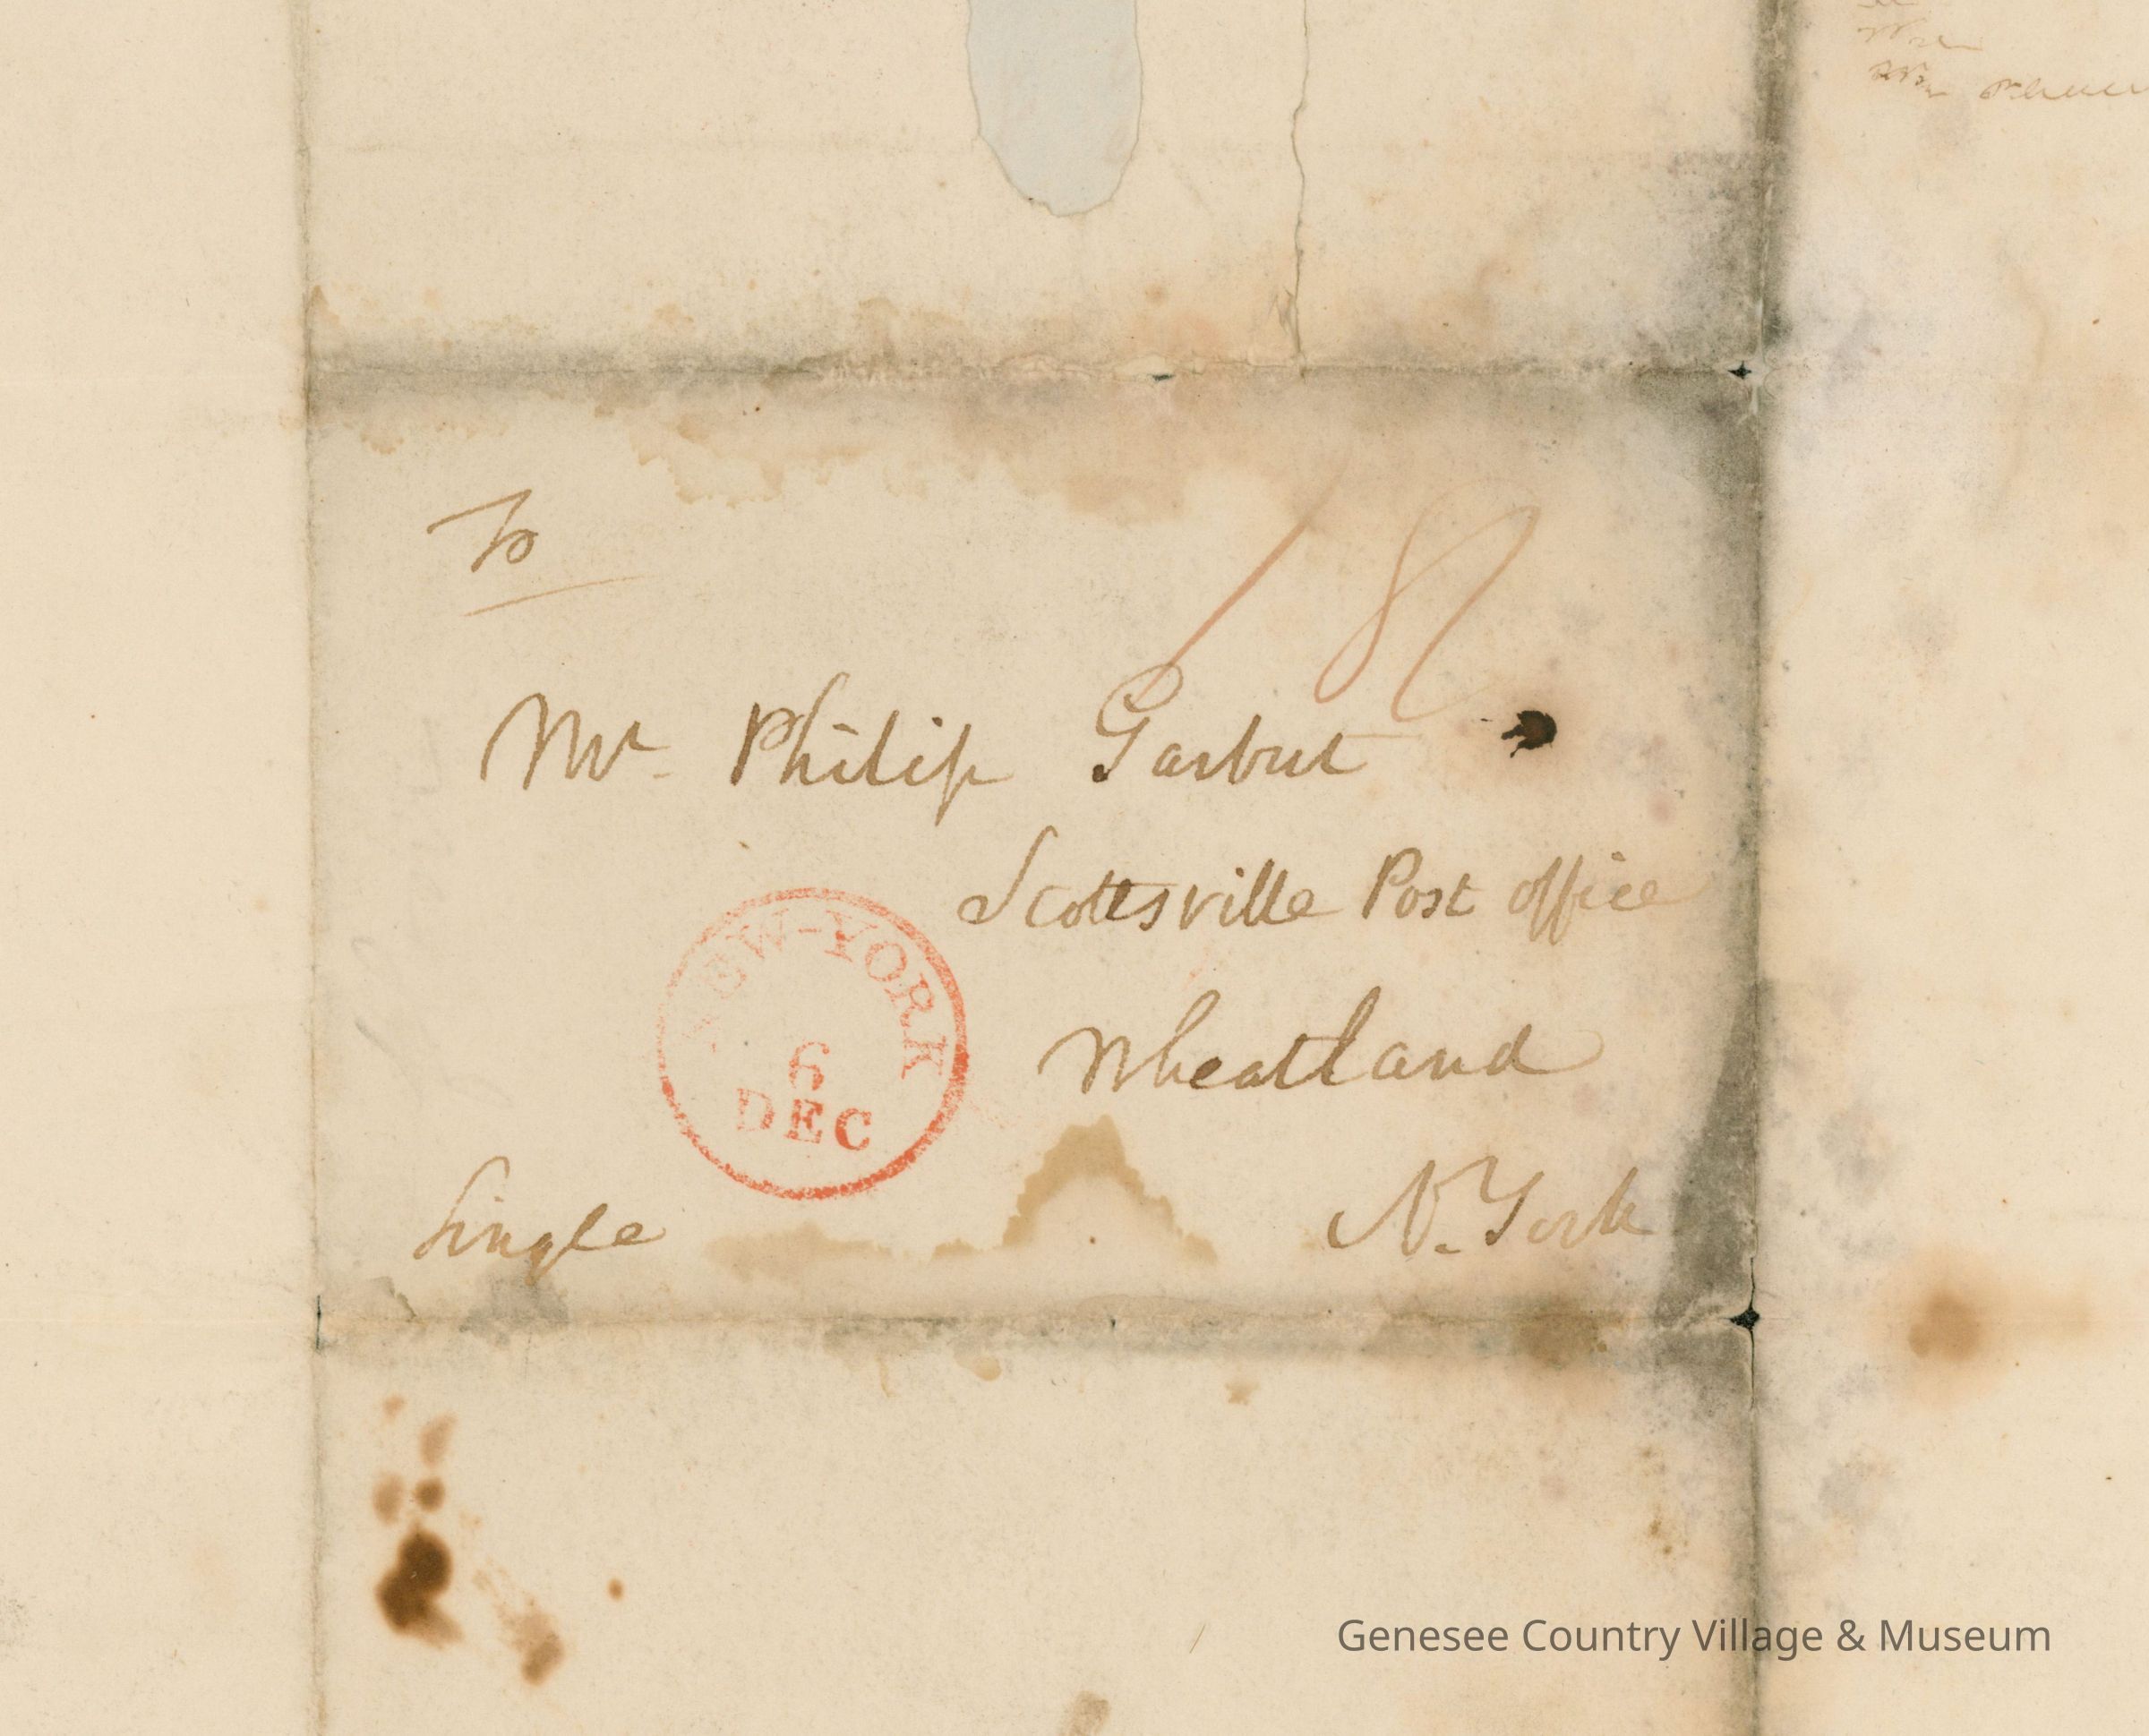 To
18
Mr. Philip Garbut
Scottsville Post office
NEW-YORK
6
DEC
Wheatland
Single
N. York
Genesee Country Village & Museum